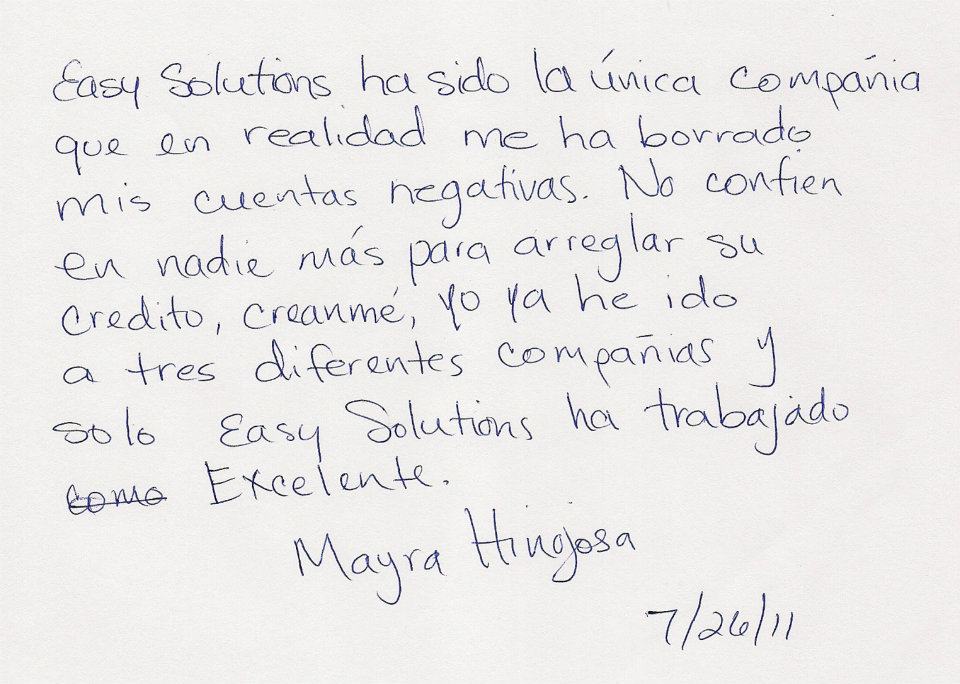 Easy Solutions ha sido la única compañia
que en realidad me ha borrado
mis cuentas negativas. No confien
en nadie más para arreglar su
credito, creanmé, yo ya he ido
a tres diferentes compañias y
solo Easy Solutions ha trabajado
como Excelente.
Mayra Hinojosa
7/26/11